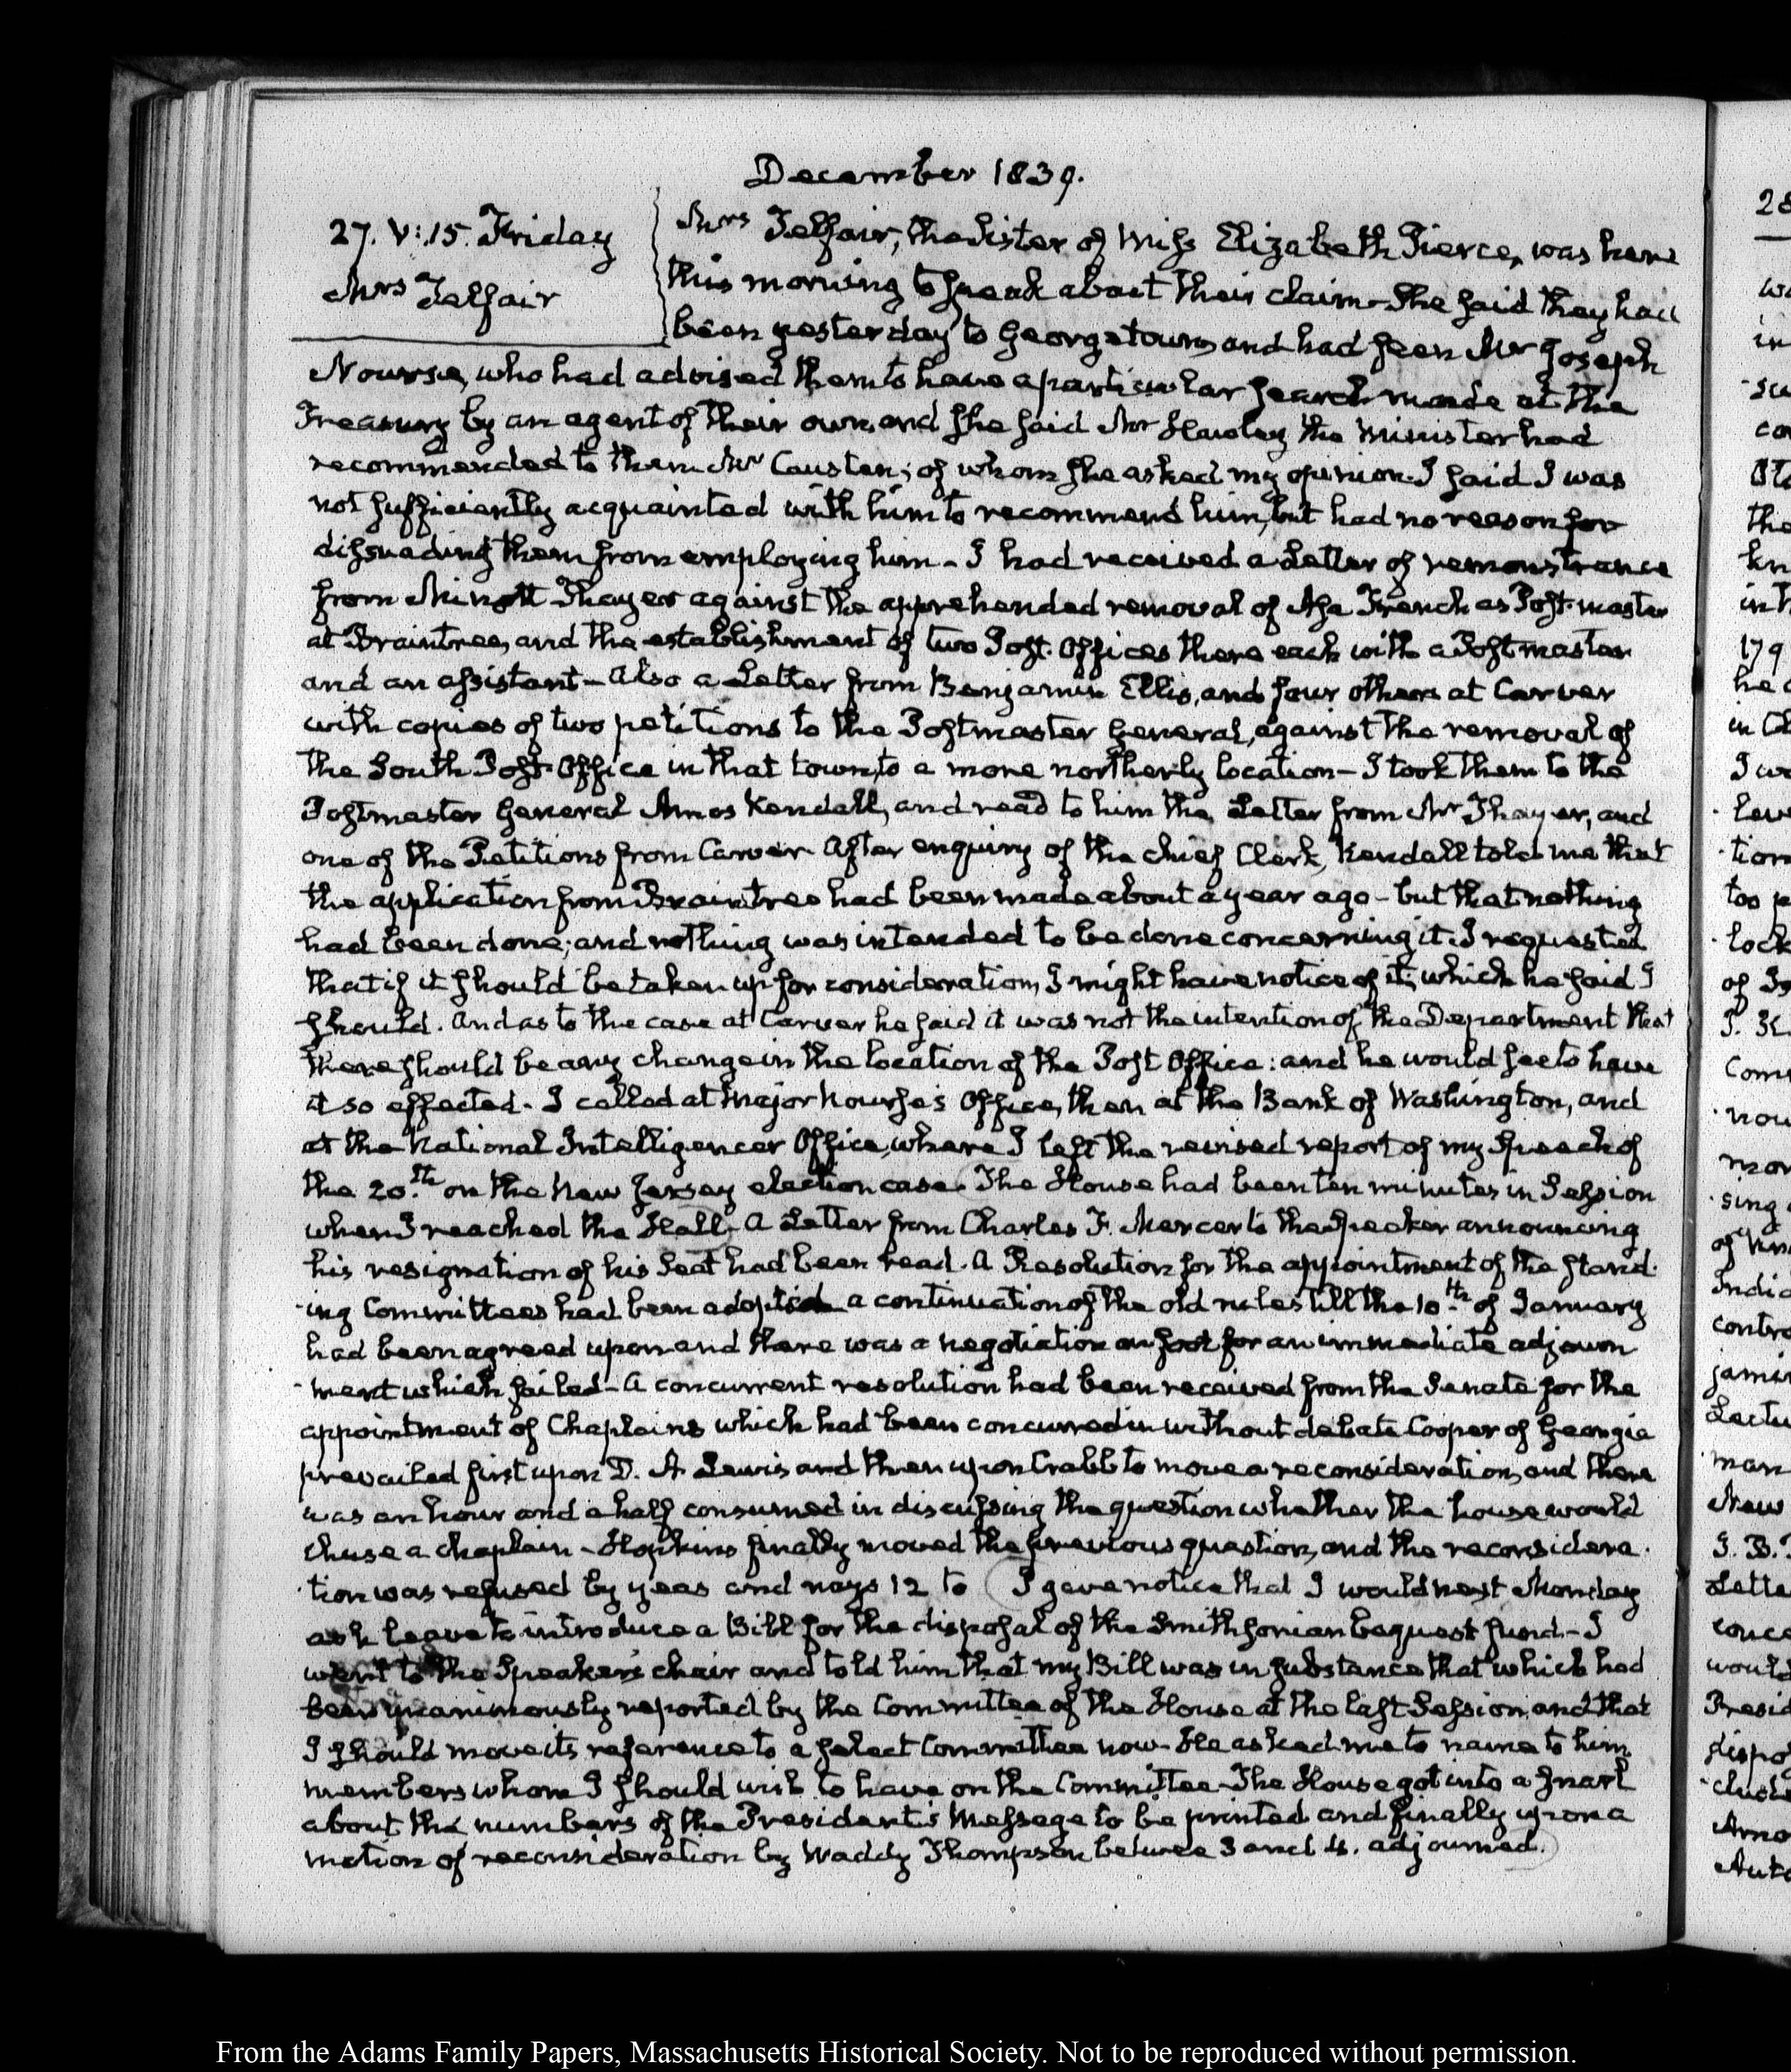 December 1839.
27. V:15. Friday
Mrs Telfair
Mrs Telfair, the Sister of Miss Elizabeth Pierce, was here
this morning to speak about their claim. She said they had
been yesterday to Georgetown, and had seen Mr Joseph
Nourse, who had advised them to have a particular search made at the
Treasury by an agent of their own, and she said Mr Hawley the Minister had
recommended to them Mr Causten; of whom she asked my opinion. I said I was
not sufficiently acquainted with him to recommend him, but had no reason for
dissuading them from employing him - I had received a Letter of remonstrance
from Minott Thayer against the apprehended removal of Asa French as Post-master
at Braintree, and the establishment of two Post-Offices there each with a Postmaster
and an assistant - Also a Letter from Benjamin Ellis, and four others at Carver
with copies of two petitions to the Postmaster General, against the removal of
the South Post-Office in that town, to a more northerly location - I took them to the
Postmaster General Amos Kendall, and read to him the Letter from Mr Thayer, and
one of the Petitions from Carver. After enquiry of the chief Clerk, Kendall told me that
the application from Braintree had been made about a year ago - but that nothing
had been done; and nothing was intended to be done concerning it. I requested
that if it should be taken up for consideration, I might have notice of it; which he said I
should. And as to the case at Carver he said it was not the intention of the Department that
there should be any change in the location of the Post Office: and he would see to have
it so effected. I called at Major Nourse's Office, then at the Bank of Washington, and
at the National Intelligencer Office, where I left the revised report of my Speech of
the 20.th on the New Jersey election case. The House had been ten minutes in Session
when I reached the Hall - A Letter from Charles F. Mercer to the Speaker announcing
his resignation of his Seat had been read. A Resolution for the appointment of the stand-
-ing Committees had been adopted a continuation of the old rules till the 10.th of January
had been agreed upon and there was a negotiation on foot for an immediate adjourn
-ment which failed - A concurrent resolution had been received from the Senate for the
appointment of Chaplains which had been concurred in without debate. Cooper of Georgia
prevailed first upon D. H. Lewis and then upon Crabb to move a reconsideration, and there
was an hour and a half consumed in discussing the question whether the house would
chuse a chaplain - Hopkins finally moved the previous question, and the reconsidera-
-tion was refused by yeas and nays 12 to ( I gave notice that I would next Monday
ask leave to introduce a Bill for the disposal of the Smithsonian bequest fund - I
went to the Speaker's chair and told him that my Bill was in substance that which had
been unanimously reported by the Committee of the House at the last Session, and that
I should move its reference to a select Committee now. He asked me to name to him
members whom I should wish to have on the Committee. The House got into a snarl
about the numbers of the President's Message to be printed and finally upon a
motion of reconsideration by Waddy Thompson betwee 3 and 4. adjourned.)
From the Adams Family Papers, Massachusetts Historical Society. Not to be reproduced without permission.